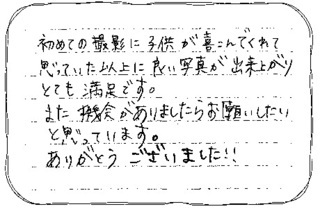 初めての撮影に子供が喜こんでくれて
思っていた以上に良い写真が出来上がり
とても満足です。
また機会がありましたらお願いしたい
と思っています。
ありがとうございました!!